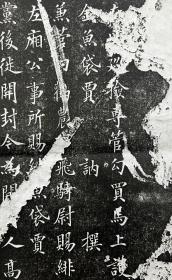 巡檢專管勾買馬上護
金魚袋賈 訥 撰
飛騎尉賜緋
左廂公事所賜緋魚袋賈
黨後徙開封今為開 人高